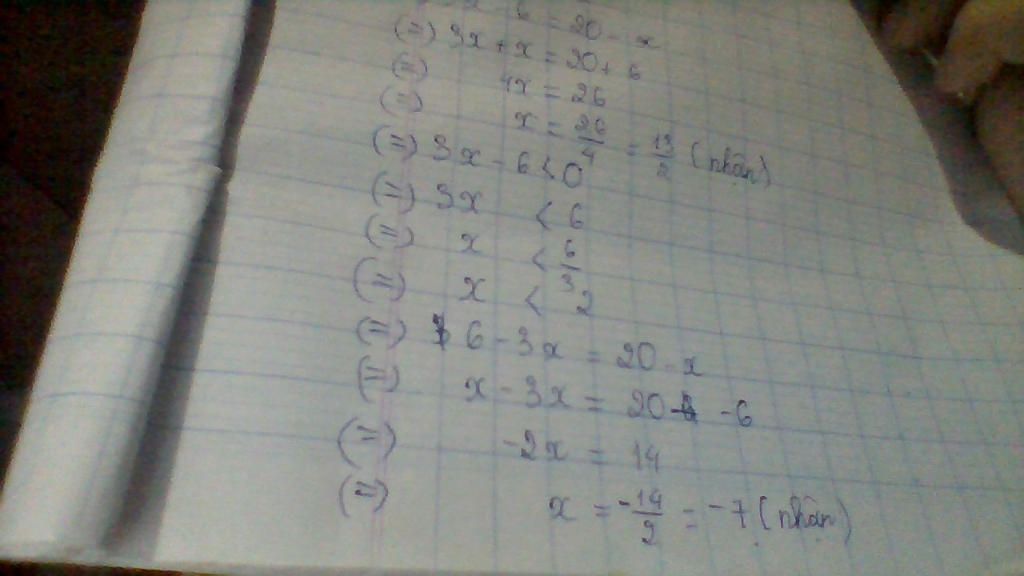 x - 6 = 20 - x
(=) 3x + x = 20 + 6
(=) 4x = 26
(=) x = 26/4 = 13/2 (nhận)
(=) 3x - 6 < 0
(=) 3x < 6
(=) x < 6/3
(=) x < 2
(=) 6 - 3x = 20 - x
(=) x - 3x = 20 - 6
(=) -2x = 14
(=) x = -14/2 = -7 (nhận)